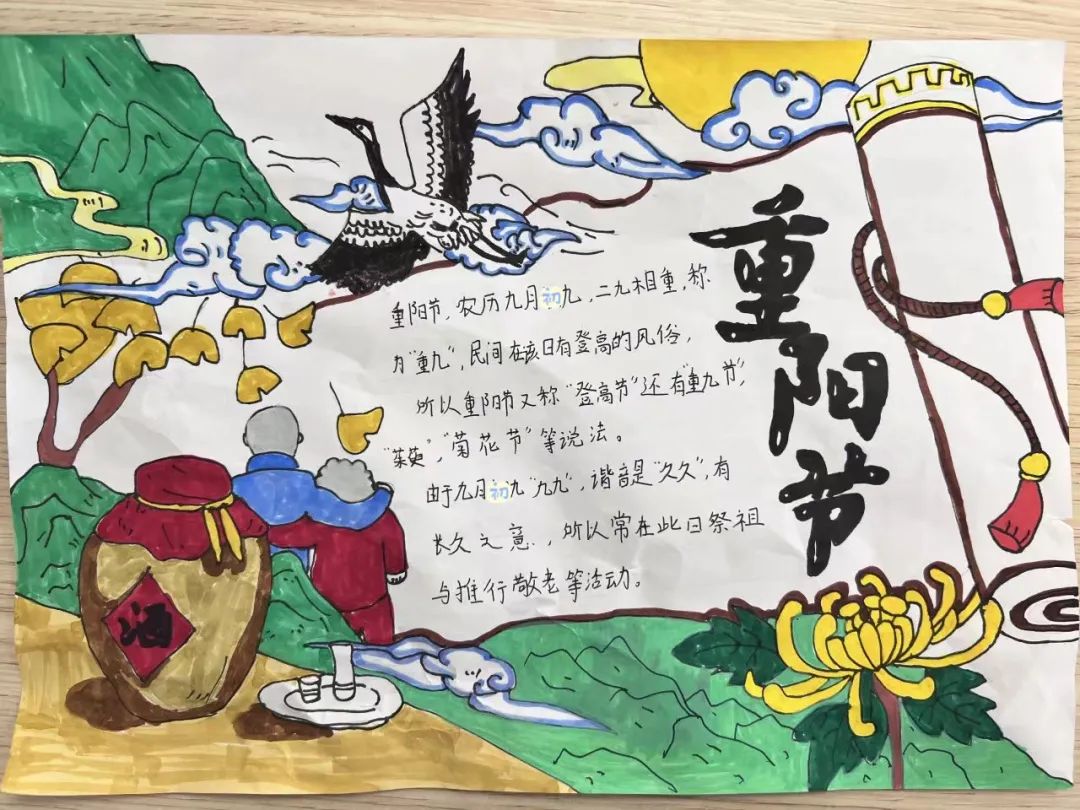 重阳节
重阳节，农历九月初九，二九相重，称
为“重九”，民间在该日有登高的风俗，
所以重阳节又称“登高节”还有“重九节”，
“茱萸”，“菊花节”等说法。
由于九月初九“九九”，谐音是“久久”，有
长久之意，所以常在此日祭祖
与推行敬老等活动。
酒